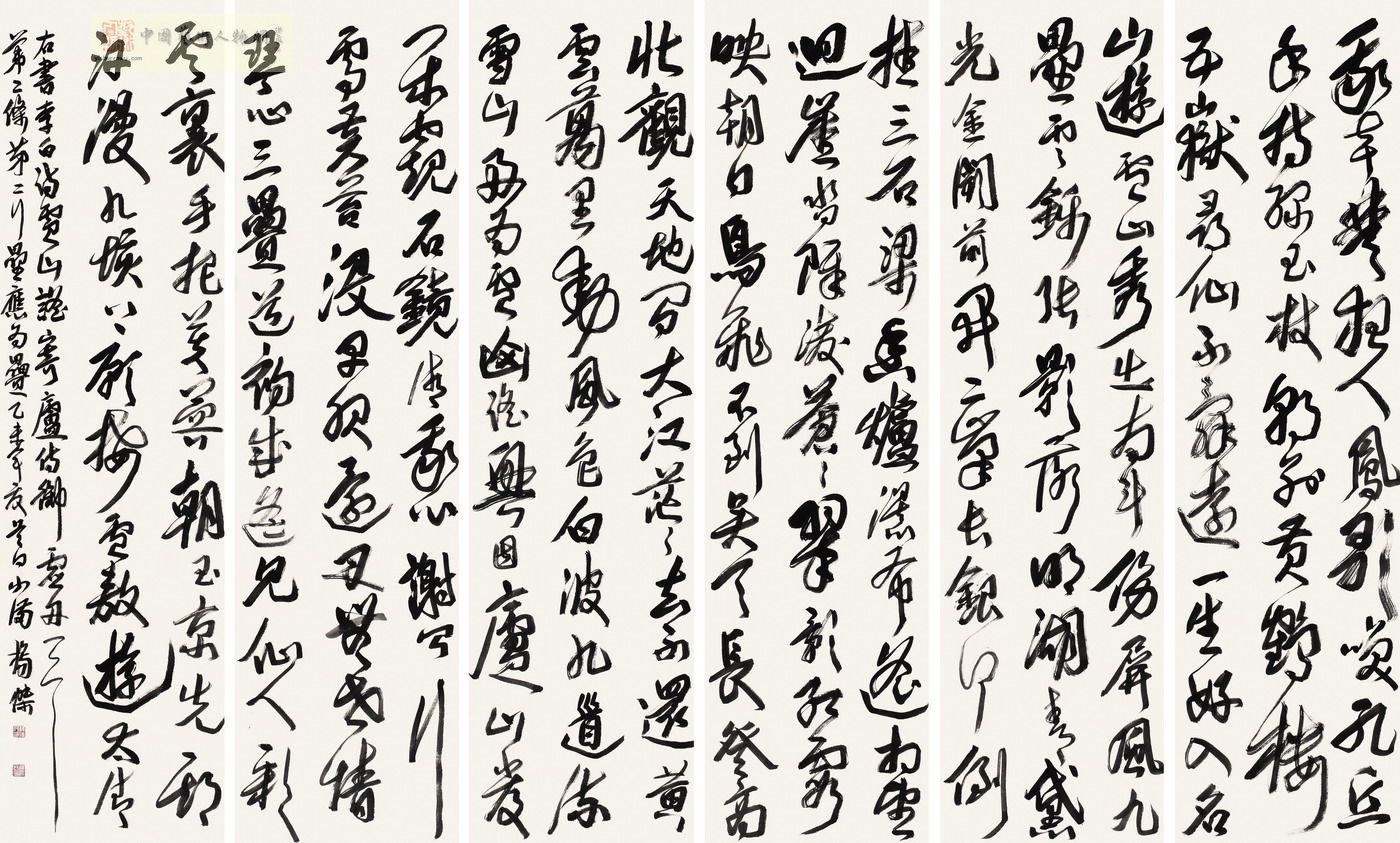 我本楚狂人鳳歌笑孔丘
手持綠玉杖朝別黃鶴樓
五嶽尋仙不辭遠一生好入名
山遊廬山秀出南斗傍屏風九
壘雲錦張影落明湖青黛
光金闕前開二峯長銀河倒
挂三石梁香爐瀑布遙相望
迴崖沓障凌蒼々翠影紅霞
映朝日鳥飛不到吳天長登高
壯觀天地間大江茫々去不還黃
雲萬里動風色白波九道流
雪山好為廬山謠興因廬山發
閑窺石鏡清我心謝公行
處蒼苔沒早服還丹無世情
琴心三疊道初成遙見仙人彩
雲裏手把芙蓉朝玉京先期
汗漫九垓上願接盧敖遊太清
右書李白詩廬山謠寄廬侍御虛舟
第二條第二行壘應為疊乙未年夏吉日小滿楊傑